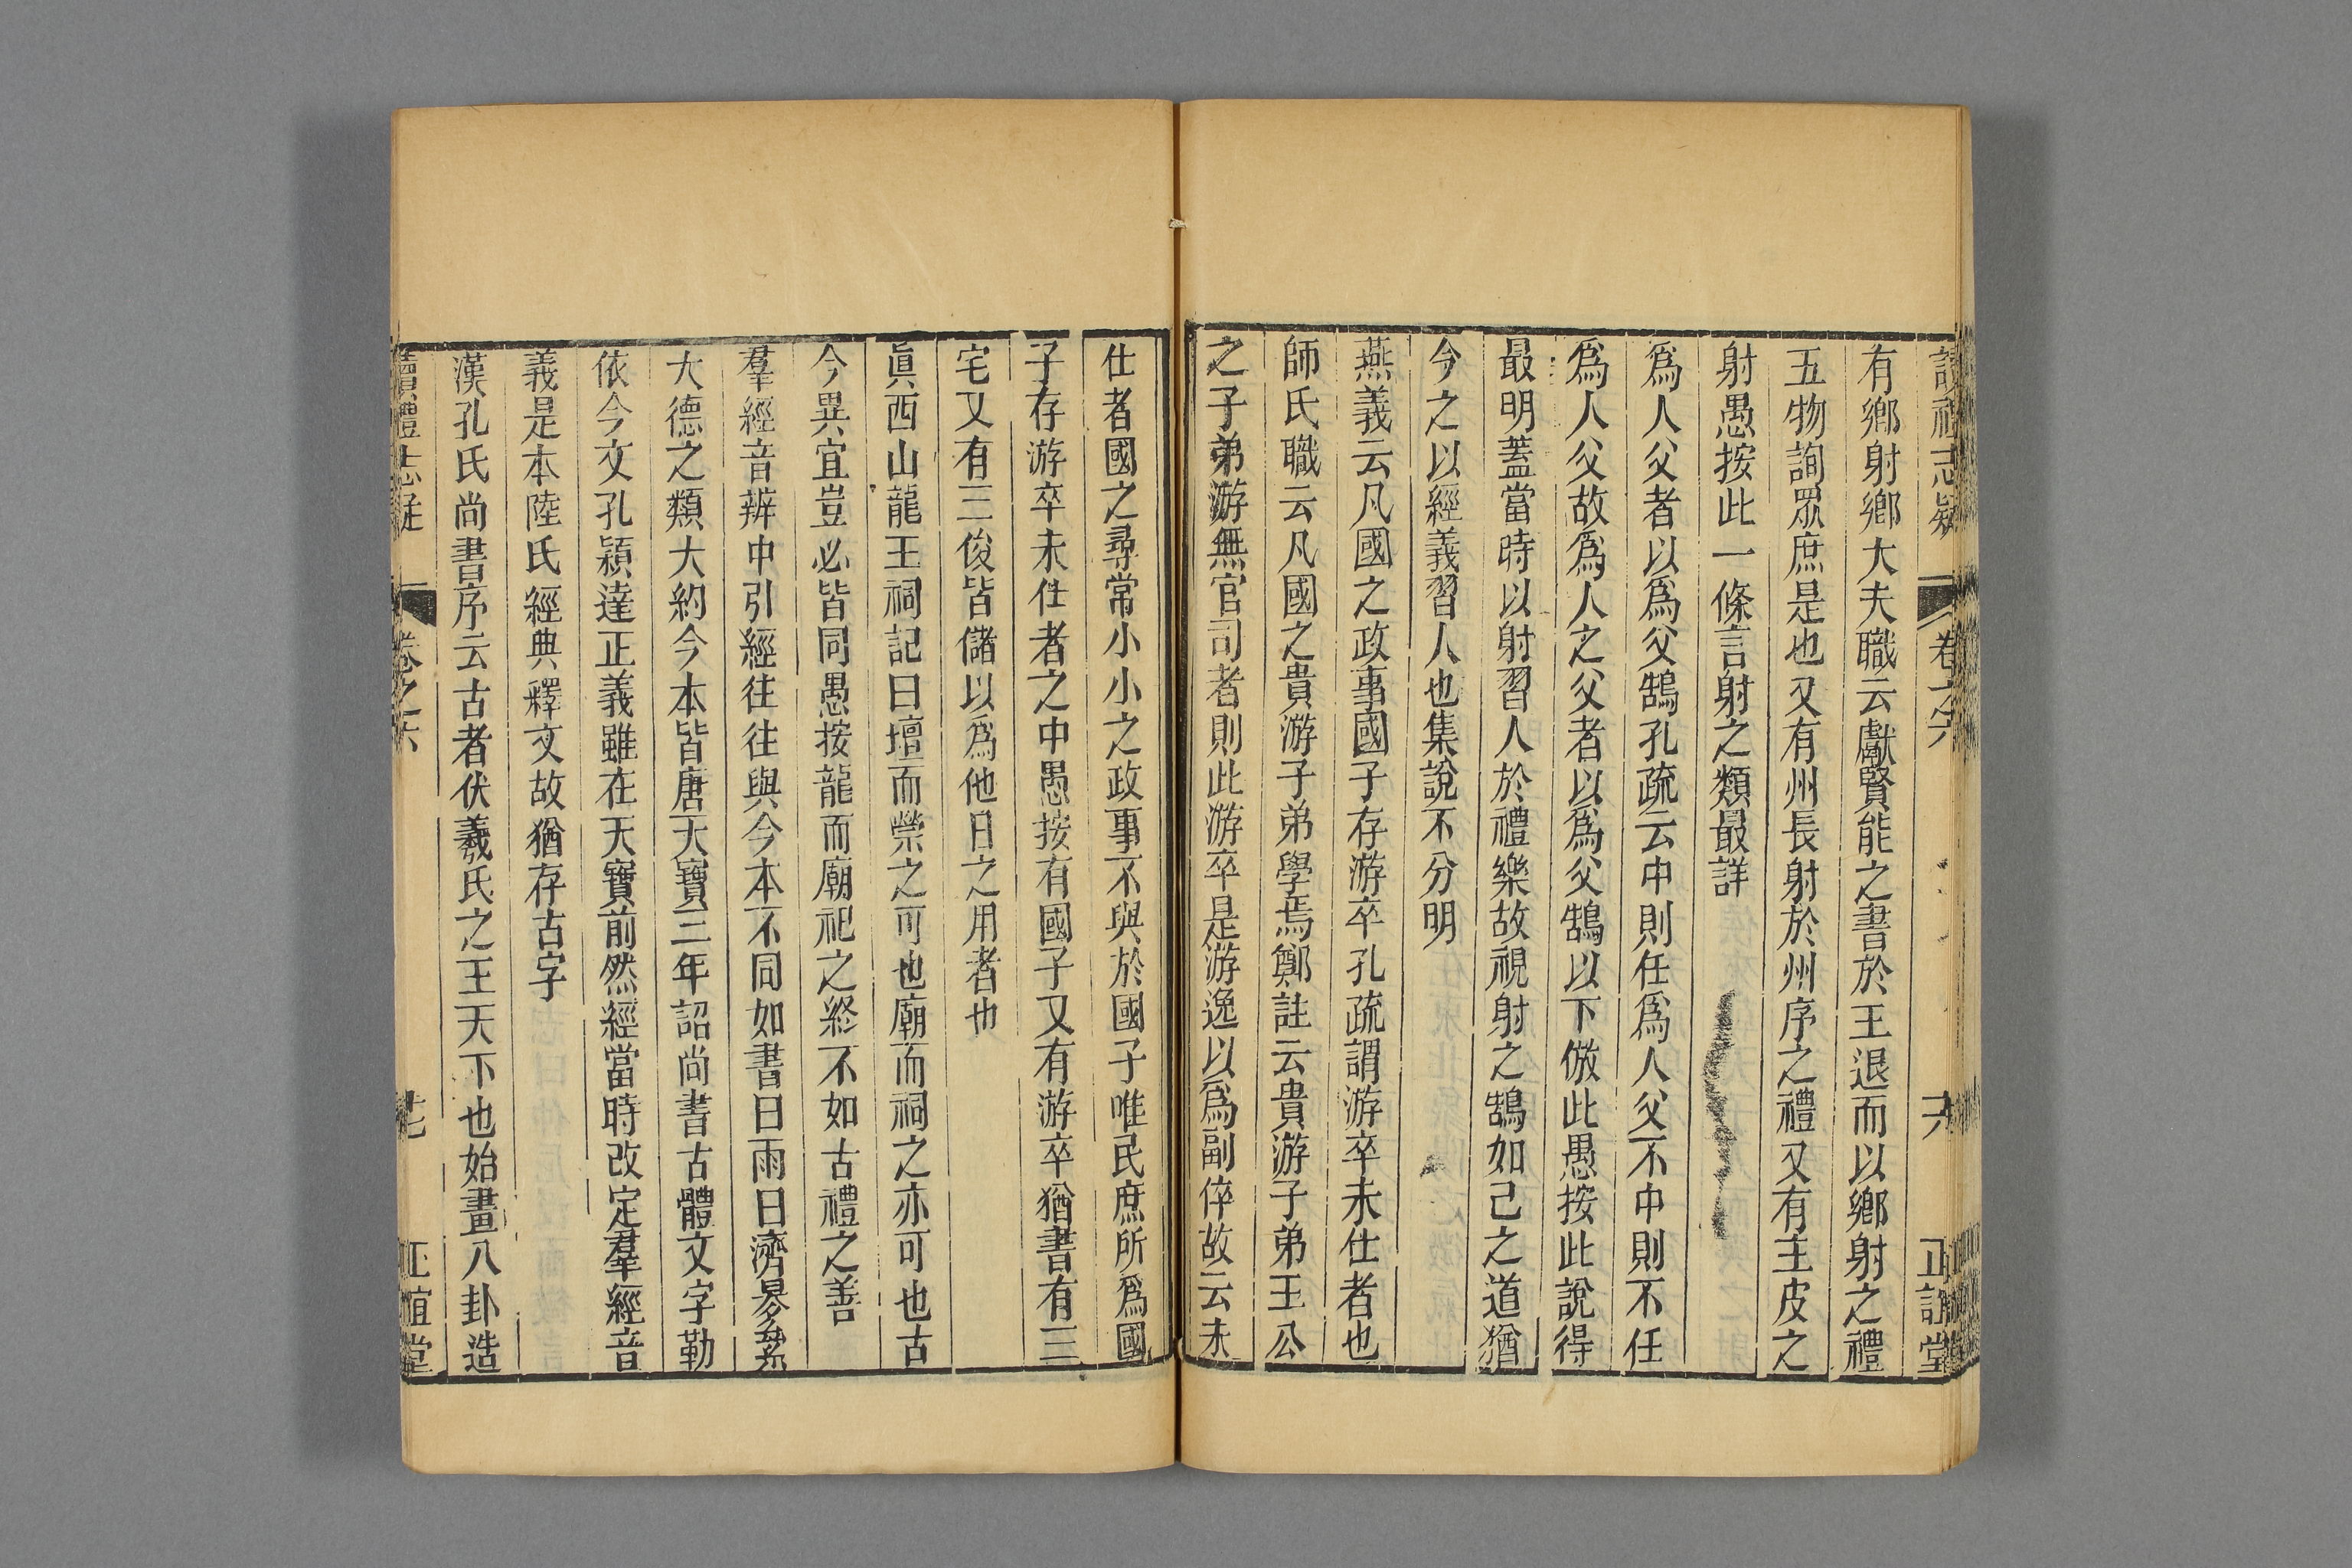 讀禮志疑 卷之六 正誼堂
有鄉射鄉大夫職云獻賢能之書於王退而以鄉射之禮
五物詢眾庶是也又有州長射於州序之禮又有主皮之
射愚按此一條言射之類最詳
為人父者以為父鵠孔疏云中則任為人父不中則不任
為人父故為人之父者以為父鵠以下倣此愚按此說得
最明蓋當時以射習人於禮樂故視射之鵠如己之道猶
今之以經義習人也集說不分明
燕義云凡國之政事國子存游卒孔疏謂游卒未仕者也
師氏職云凡國之貴游子弟學焉鄭註云貴游子弟王公
之子弟游無官司者則此游卒是游逸以為副倅故云未
仕者國之尋常小小之政事不與於國子唯民庶所為國
子存游卒未仕者之中愚按有國子又有游卒猶書有三
宅又有三俊皆儲以為他日之用者也
眞西山龍王祠記曰壇而禜之可也廟而祠之亦可也古
今異宜豈必皆同愚按龍而廟祀之終不如古禮之善
羣經音辨中引經往往與今本不同如書曰雨曰濟曩
大德之類大約今本皆唐天寶三年詔尚書古體文字勒
依今文孔頴達正義雖在天寶前然經當時改定羣經音
義是本陸氏經典釋文故猶存古字
漢孔氏尚書序云古者伏羲氏之王天下也始畫八卦造
讀禮志疑 卷之六 七 正誼堂